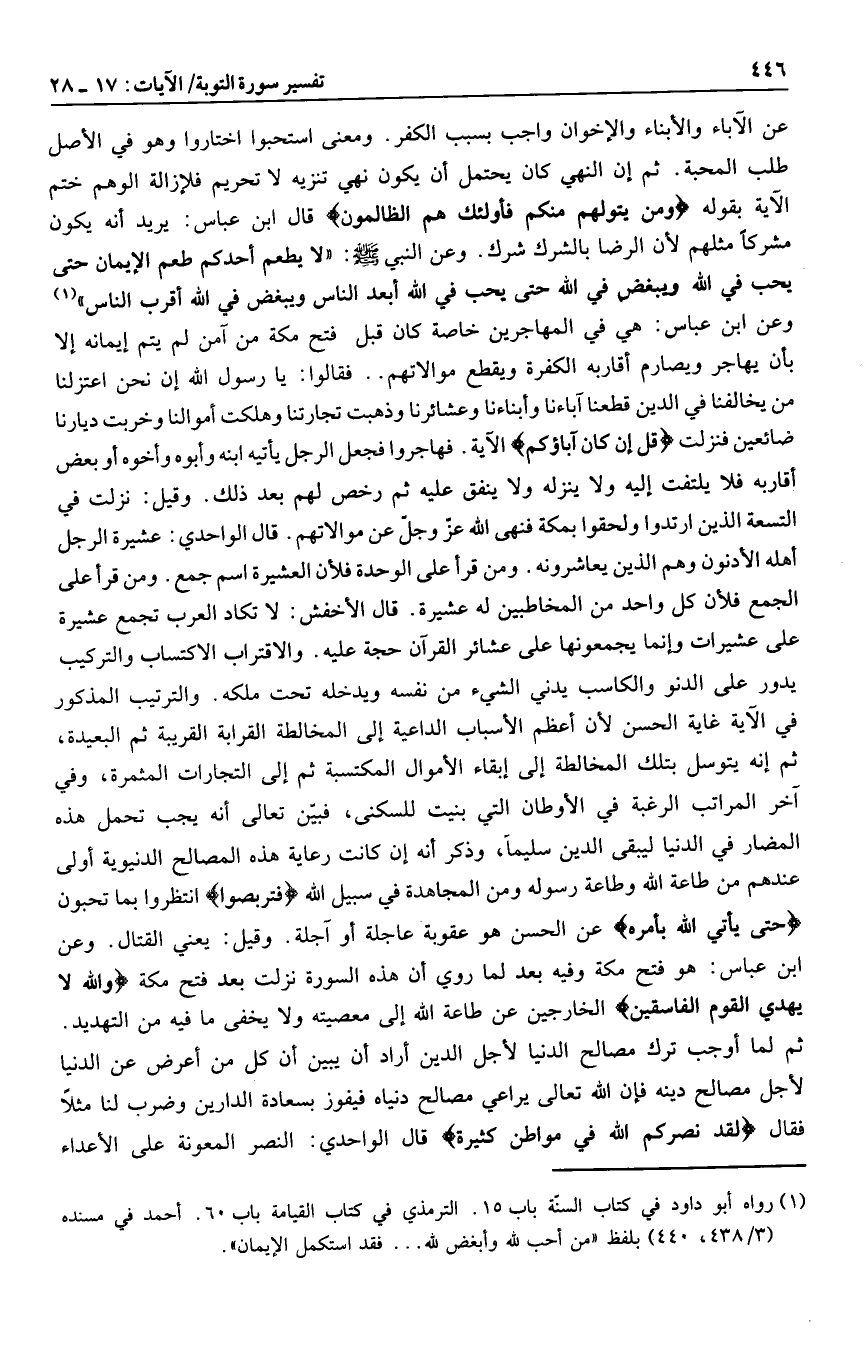 ٤٤٦
تفسير سورة التوبة/ الآيات: ١٧ ـ ٢٨
عن الآباء والأبناء والإخوان واجب بسبب الكفر. ومعنى استحبوا اختاروا وهو في الأصل
طلب المحبة. ثم إن النهي كان يحتمل أن يكون نهي تنزيه لا تحريم فلإزالة الوهم ختم
الآية بقوله ﴿ومن يتولهم منكم فأولئك هم الظالمون﴾ قال ابن عباس: يريد أنه يكون
مشركاً مثلهم لأن الرضا بالشرك شرك. وعن النبي ﷺ: «لا يطعم أحدكم طعم الإيمان حتى
يحب في الله ويبغض في الله حتى يحب في الله أبعد الناس ويبغض في الله أقرب الناس»(١)
وعن ابن عباس: هي في المهاجرين خاصة كان قبل فتح مكة من آمن لم يتم إيمانه إلا
بأن يهاجر ويصارم أقاربه الكفرة ويقطع موالاتهم.. فقالوا: يا رسول الله إن نحن اعتزلنا
من يخالفنا في الدين قطعنا آباءنا وأبناءنا وعشائرنا وذهبت تجارتنا وهلكت أموالنا وخربت ديارنا
ضائعين فنزلت ﴿قل إن كان آباؤكم﴾ الآية. فهاجروا فجعل الرجل يأتيه ابنه وأبوه وأخوه أو بعض
أقاربه فلا يلتفت إليه ولا ينزله ولا ينفق عليه ثم رخص لهم بعد ذلك. وقيل: نزلت في
التسعة الذين ارتدوا ولحقوا بمكة فنهى الله عزّ وجلّ عن موالاتهم. قال الواحدي: عشيرة الرجل
أهله الأدنون وهم الذين يعاشرونه. ومن قرأ على الوحدة فلأن العشيرة اسم جمع. ومن قرأ على
الجمع فلأن كل واحد من المخاطبين له عشيرة. قال الأخفش: لا تكاد العرب تجمع عشيرة
على عشيرات وإنما يجمعونها على عشائر القرآن حجة عليه. والاقتراب الاكتساب والتركيب
يدور على الدنو والكاسب يدني الشيء من نفسه ويدخله تحت ملكه. والترتيب المذكور
في الآية غاية الحسن لأن أعظم الأسباب الداعية إلى المخالطة القرابة القريبة ثم البعيدة،
ثم إنه يتوسل بتلك المخالطة إلى إبقاء الأموال المكتسبة ثم إلى التجارات المثمرة، وفي
آخر المراتب الرغبة في الأوطان التي بنيت للسكنى، فبيّن تعالى أنه يجب تحمل هذه
المضار في الدنيا ليبقى الدين سليماً، وذكر أنه إن كانت رعاية هذه المصالح الدنيوية أولى
عندهم من طاعة الله وطاعة رسوله ومن المجاهدة في سبيل الله ﴿فتربصوا﴾ انتظروا بما تحبون
﴿حتى يأتي الله بأمره﴾ عن الحسن هو عقوبة عاجلة أو آجلة. وقيل: يعني القتال. وعن
ابن عباس: هو فتح مكة وفيه بعد لما روي أن هذه السورة نزلت بعد فتح مكة ﴿والله لا
يهدي القوم الفاسقين﴾ الخارجين عن طاعة الله إلى معصيته ولا يخفى ما فيه من التهديد.
ثم لما أوجب ترك مصالح الدنيا لأجل الدين أراد أن يبين أن كل من أعرض عن الدنيا
لأجل مصالح دينه فإن الله تعالى يراعي مصالح دنياه فيفوز بسعادة الدارين وضرب لنا مثلاً
فقال ﴿لقد نصركم الله في مواطن كثيرة﴾ قال الواحدي: النصر المعونة على الأعداء
(١) رواه أبو داود في كتاب السنّة باب ١٥. الترمذي في كتاب القيامة باب ٦٠. أحمد في مسنده
(٤٣٨/٣، ٤٤٠) بلفظ «من أحب لله وأبغض لله... فقد استكمل الإيمان».